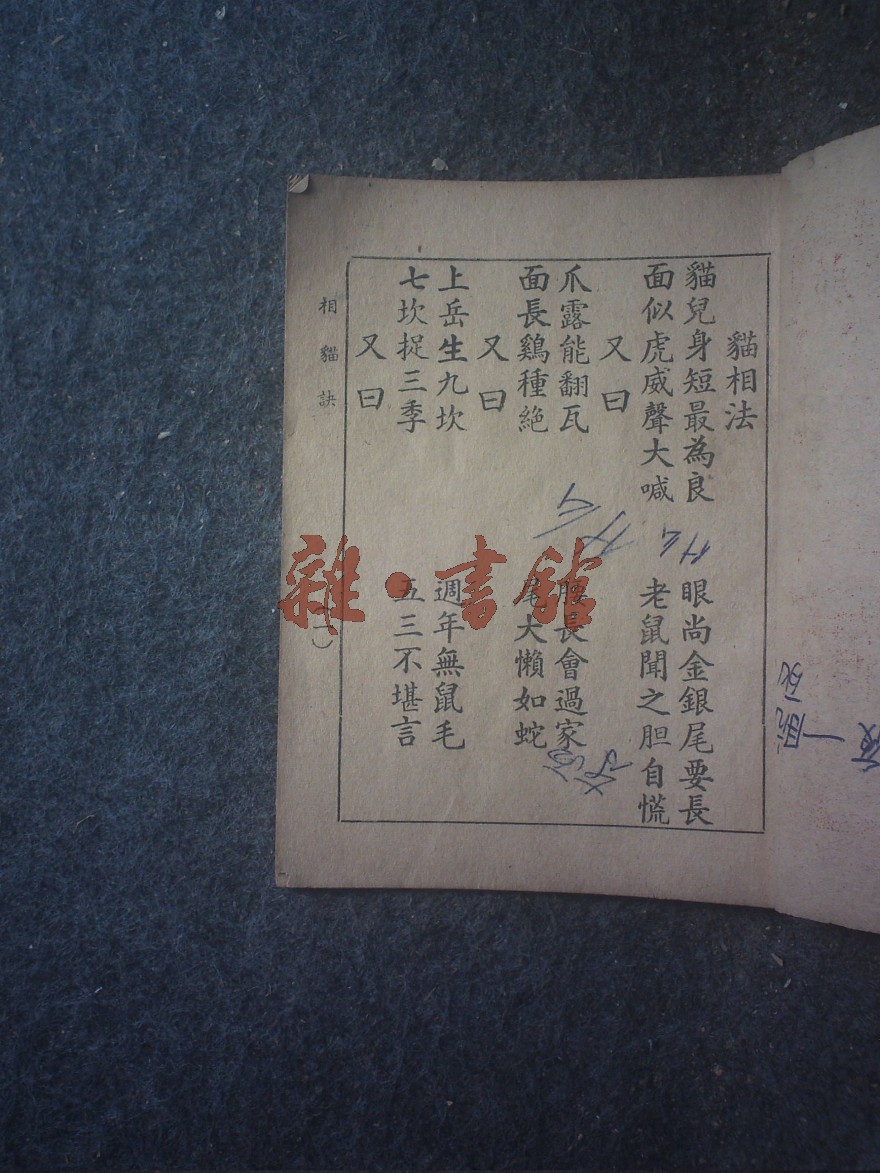 貓相法
貓兒身短最為良 眼尚金銀尾要長
面似虎威聲大喊 老鼠聞之胆自慌
又曰
爪露能翻瓦 腰長會過家
面長鷄種絶 尾大懶如蛇
又曰
上岳生九坎 週年無鼠毛
七坎捉三季 五三不堪言
又曰
相貓訣
一
雜·書館